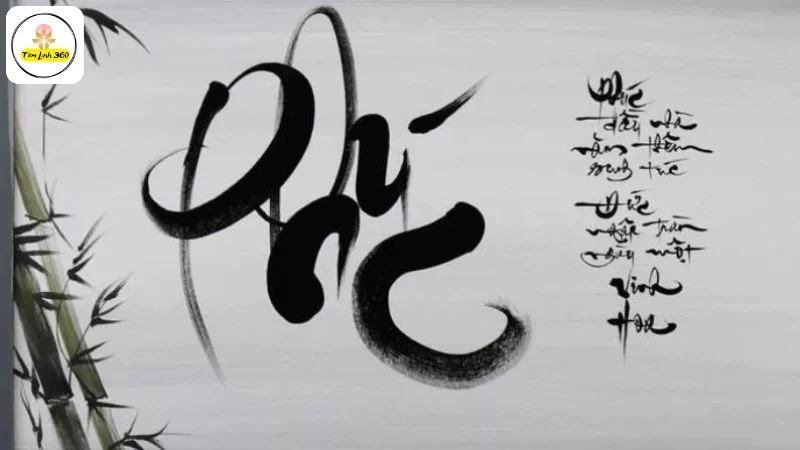 Tâm Linh 360
Phúc
Phúc
đầy nhà
năm thêm
sung túc
Đức
ngập tràn
ngày một
Vinh
Hoa